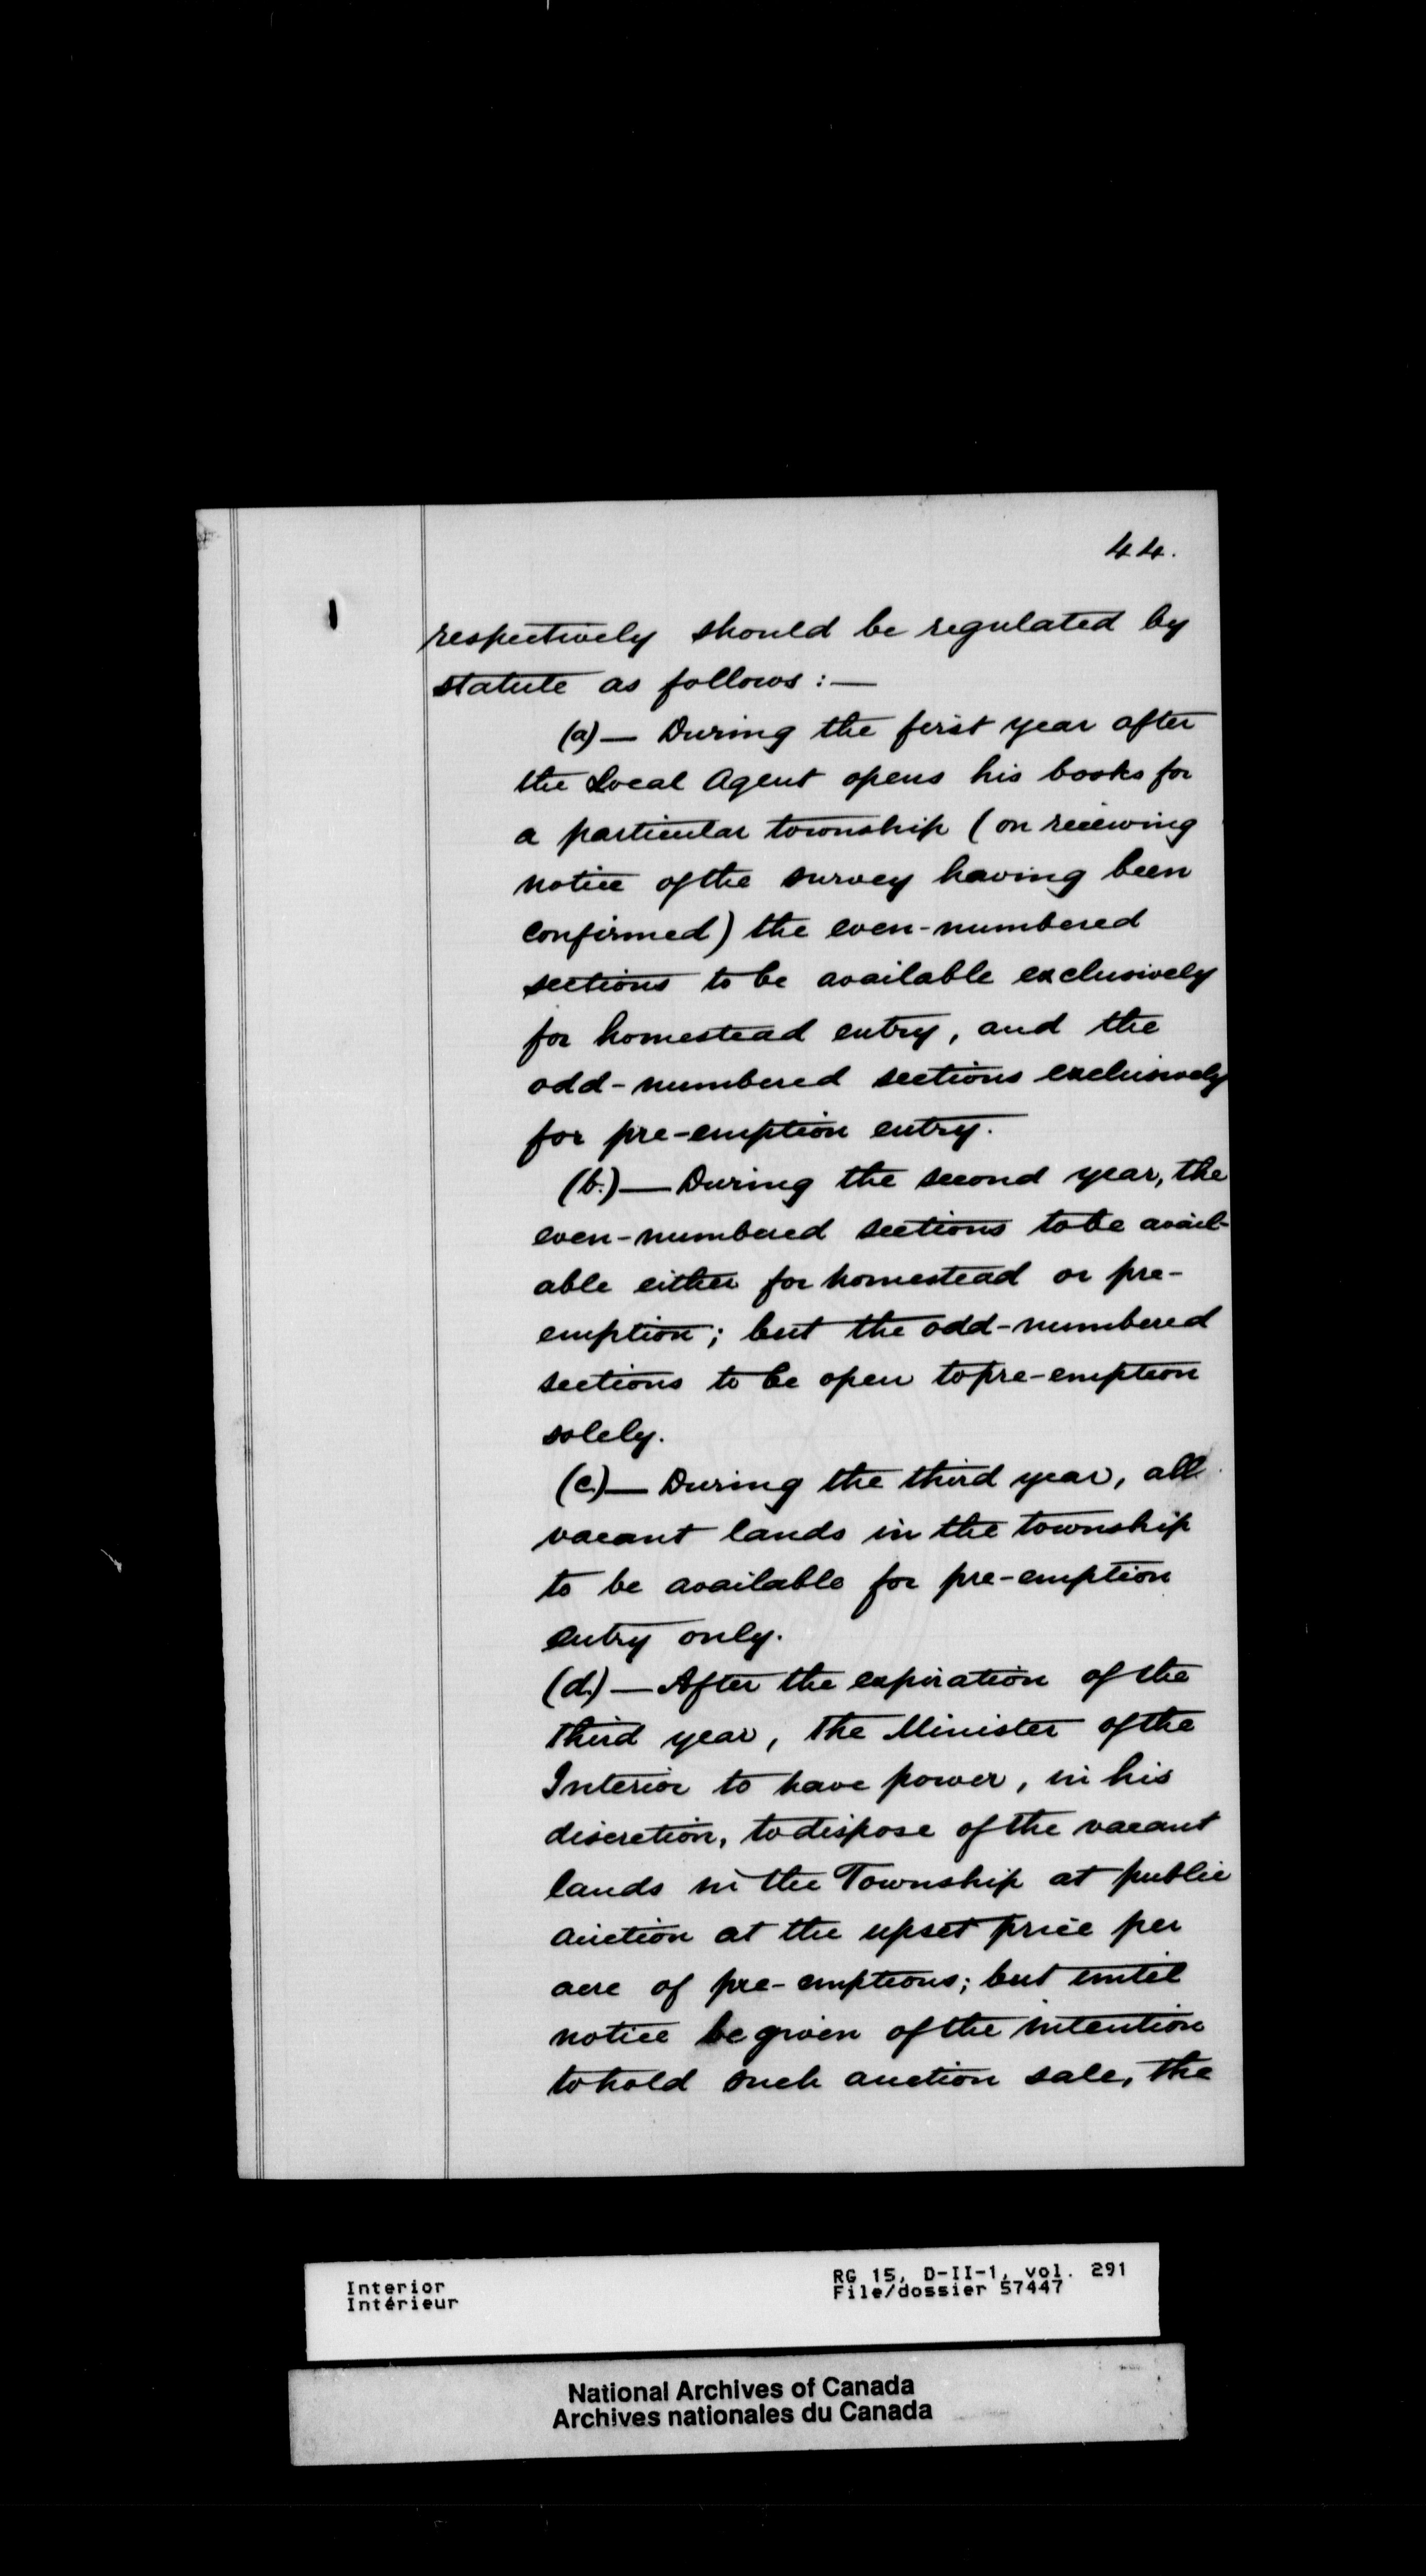 44.
respectively should be regulated by
statute as follows:—
(a)— During the first year after
the Local Agent opens his books for
a particular township (on receiving
notice of the survey having been
confirmed) the even-numbered
sections to be available exclusively
for homestead entry, and the
odd-numbered sections exclusively
for pre-emption entry.
(b.)— During the second year, the
even-numbered sections to be avail-
able either for homestead or pre-
emption; but the odd-numbered
sections to be open to pre-emption
solely.
(c.)— During the third year, all
vacant lands in the township
to be available for pre-emption
entry only.
(d.)— After the expiration of the
third year, the Minister of the
Interior to have power, in his
discretion, to dispose of the vacant
lands in the Township at public
auction at the upset price per
acre of pre-emptions; but until
notice be given of the intention
to hold such auction sale, the
Interior
Intérieur
RG 15, D-II-1, vol. 291
File/dossier 57447
National Archives of Canada
Archives nationales du Canada